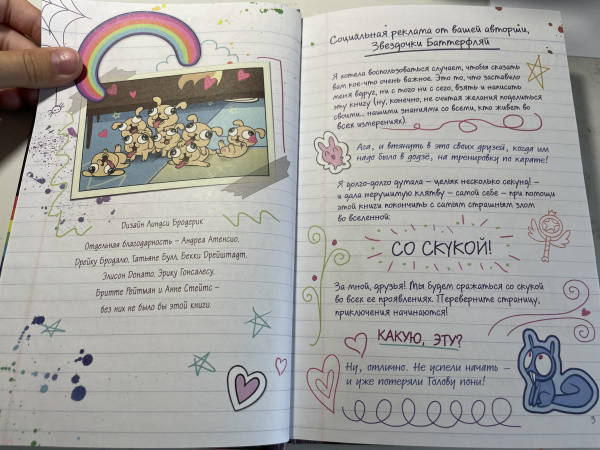 Дизайн Линдси Бродерик
Отдельная благодарность – Андреа Атенсио,
Дрейку Бродалю, Татьяне Булл, Бекки Дрейштадт,
Элисон Донато, Эрику Гонсалесу,
Бритте Рейтман и Анне Стейтс –
без них не было бы этой книги.
Социальная реклама от вашей авторши,
Звездочки Баттерфляй
Я хотела воспользоваться случаем, чтобы сказать
вам кое-что очень важное. Это то, что заставило
меня вдруг, ни с того ни с сего, взять и написать
эту книгу (ну, конечно, не считая желания поделиться
своими... нашими знаниями со всеми, кто живет во
всех измерениях).
Ага, и втянуть в это своих друзей, когда им
надо было в додзё, на тренировку по карате!
Я долго-долго думала – целых несколько секунд! –
и дала нерушимую клятву – самой себе – при помощи
этой книги покончить с самым страшным злом
во вселенной:
СО СКУКОЙ!
За мной, друзья! Мы будем сражаться со скукой
во всех ее проявлениях. Переверните страницу,
приключения начинаются!
КАКУЮ, ЭТУ?
Ну, отлично. Не успели начать –
и уже потеряли Голову пони!
3